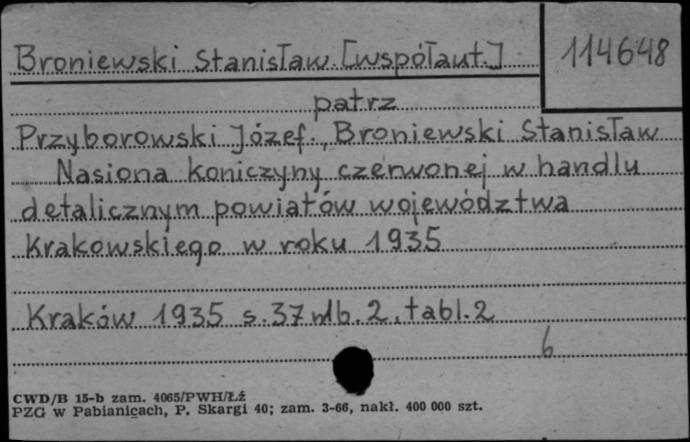 Broniewski Stanisław [współaut.]
114648
patrz
Przyborowski Józef., Broniewski Stanisław
Nasiona koniczyny czerwonej w handlu
detalicznym powiatów województwa
Krakowskiego w roku 1935
Kraków 1935 s. 37 nlb. 2, tabl. 2
6
CWD/B 15-b zam. 4065/PWH/Łź
PZG w Pabianicach, P. Skargi 40; zam. 3-66, nakł. 400 000 szt.